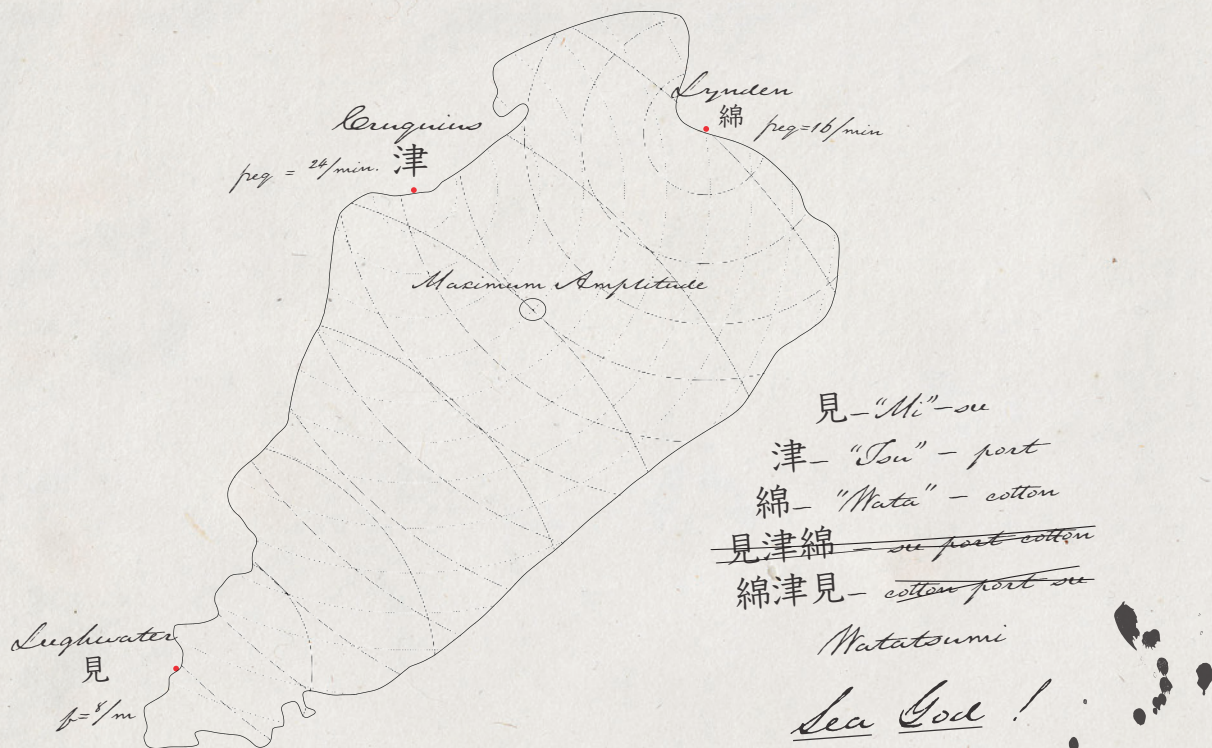 Lynden
綿 freq=16/min
Cruquius
freq = 24/min. 津
Maximum Amplitude
Leeghwater
見
f=8/m
見–"Mi"–see
津– "Tsu" – port
綿– "Wata" – cotton
見津綿 – see port cotton
綿津見– cotton port see
Watatsumi
Sea God !